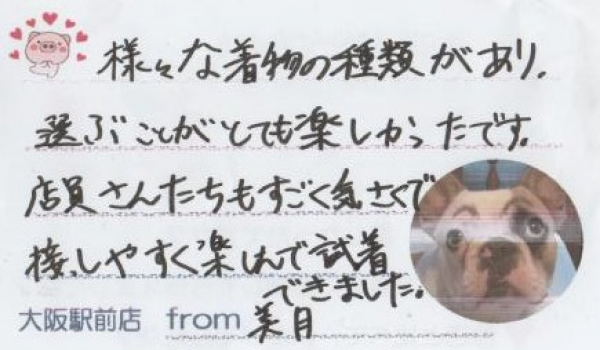 様々な着物の種類があり、
選ぶことがとても楽しかったです。
店員さんたちもすごく気さくで
接しやすく楽しんで試着
できました。
大阪駅前店 from 美月